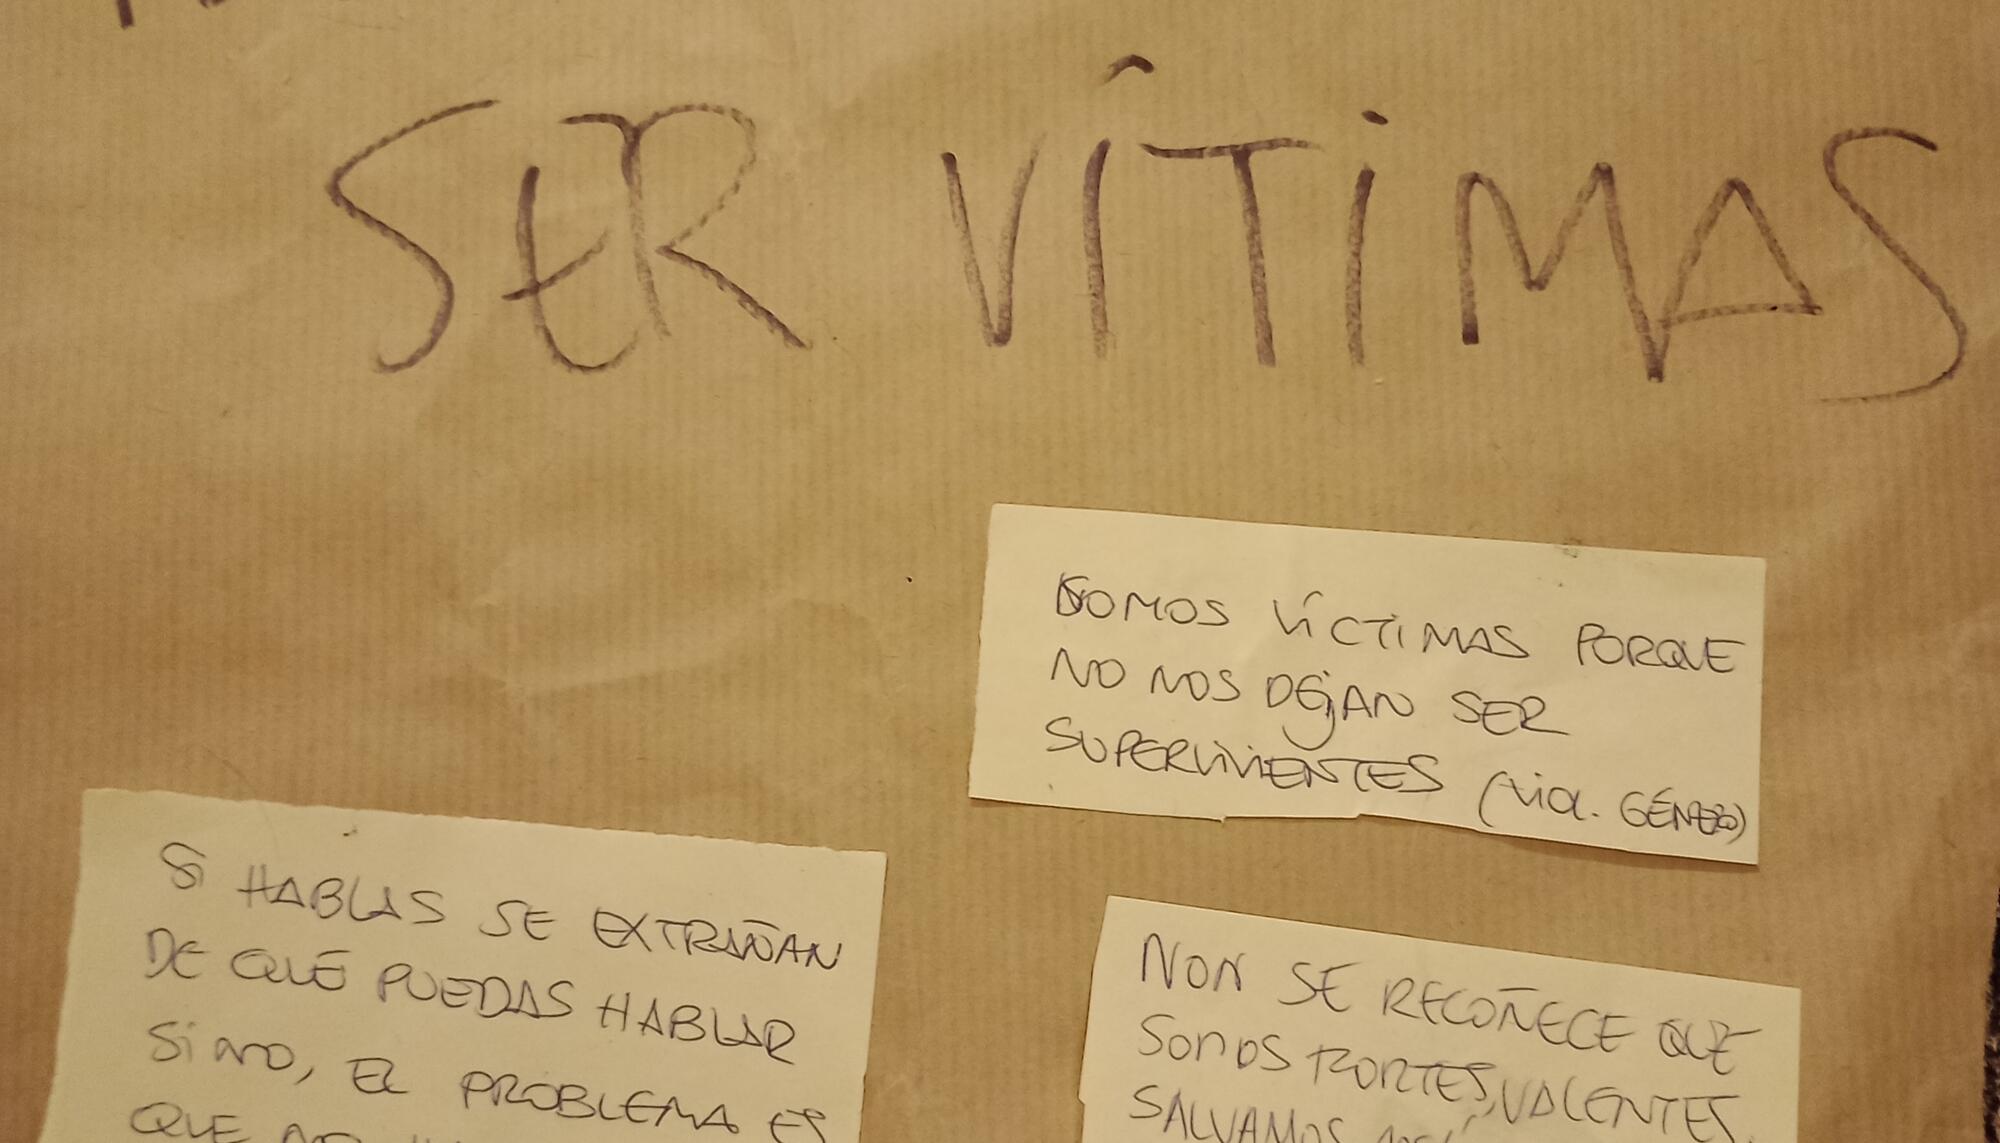 SER VÍTIMAS
SOMOS VÍCTIMAS PORQUE
NO NOS DEJAN SER
SUPERVIVIENTES (VIOL. GÉNERO)
SI HABLAS SE EXTRAÑAN
DE QUE PUEDAS HABLAR
SINO, EL PROBLEMA ES
QUE NO
NON SE RECOÑECE QUE
SOMOS FORTES, VALENTES,
SALVAMOS